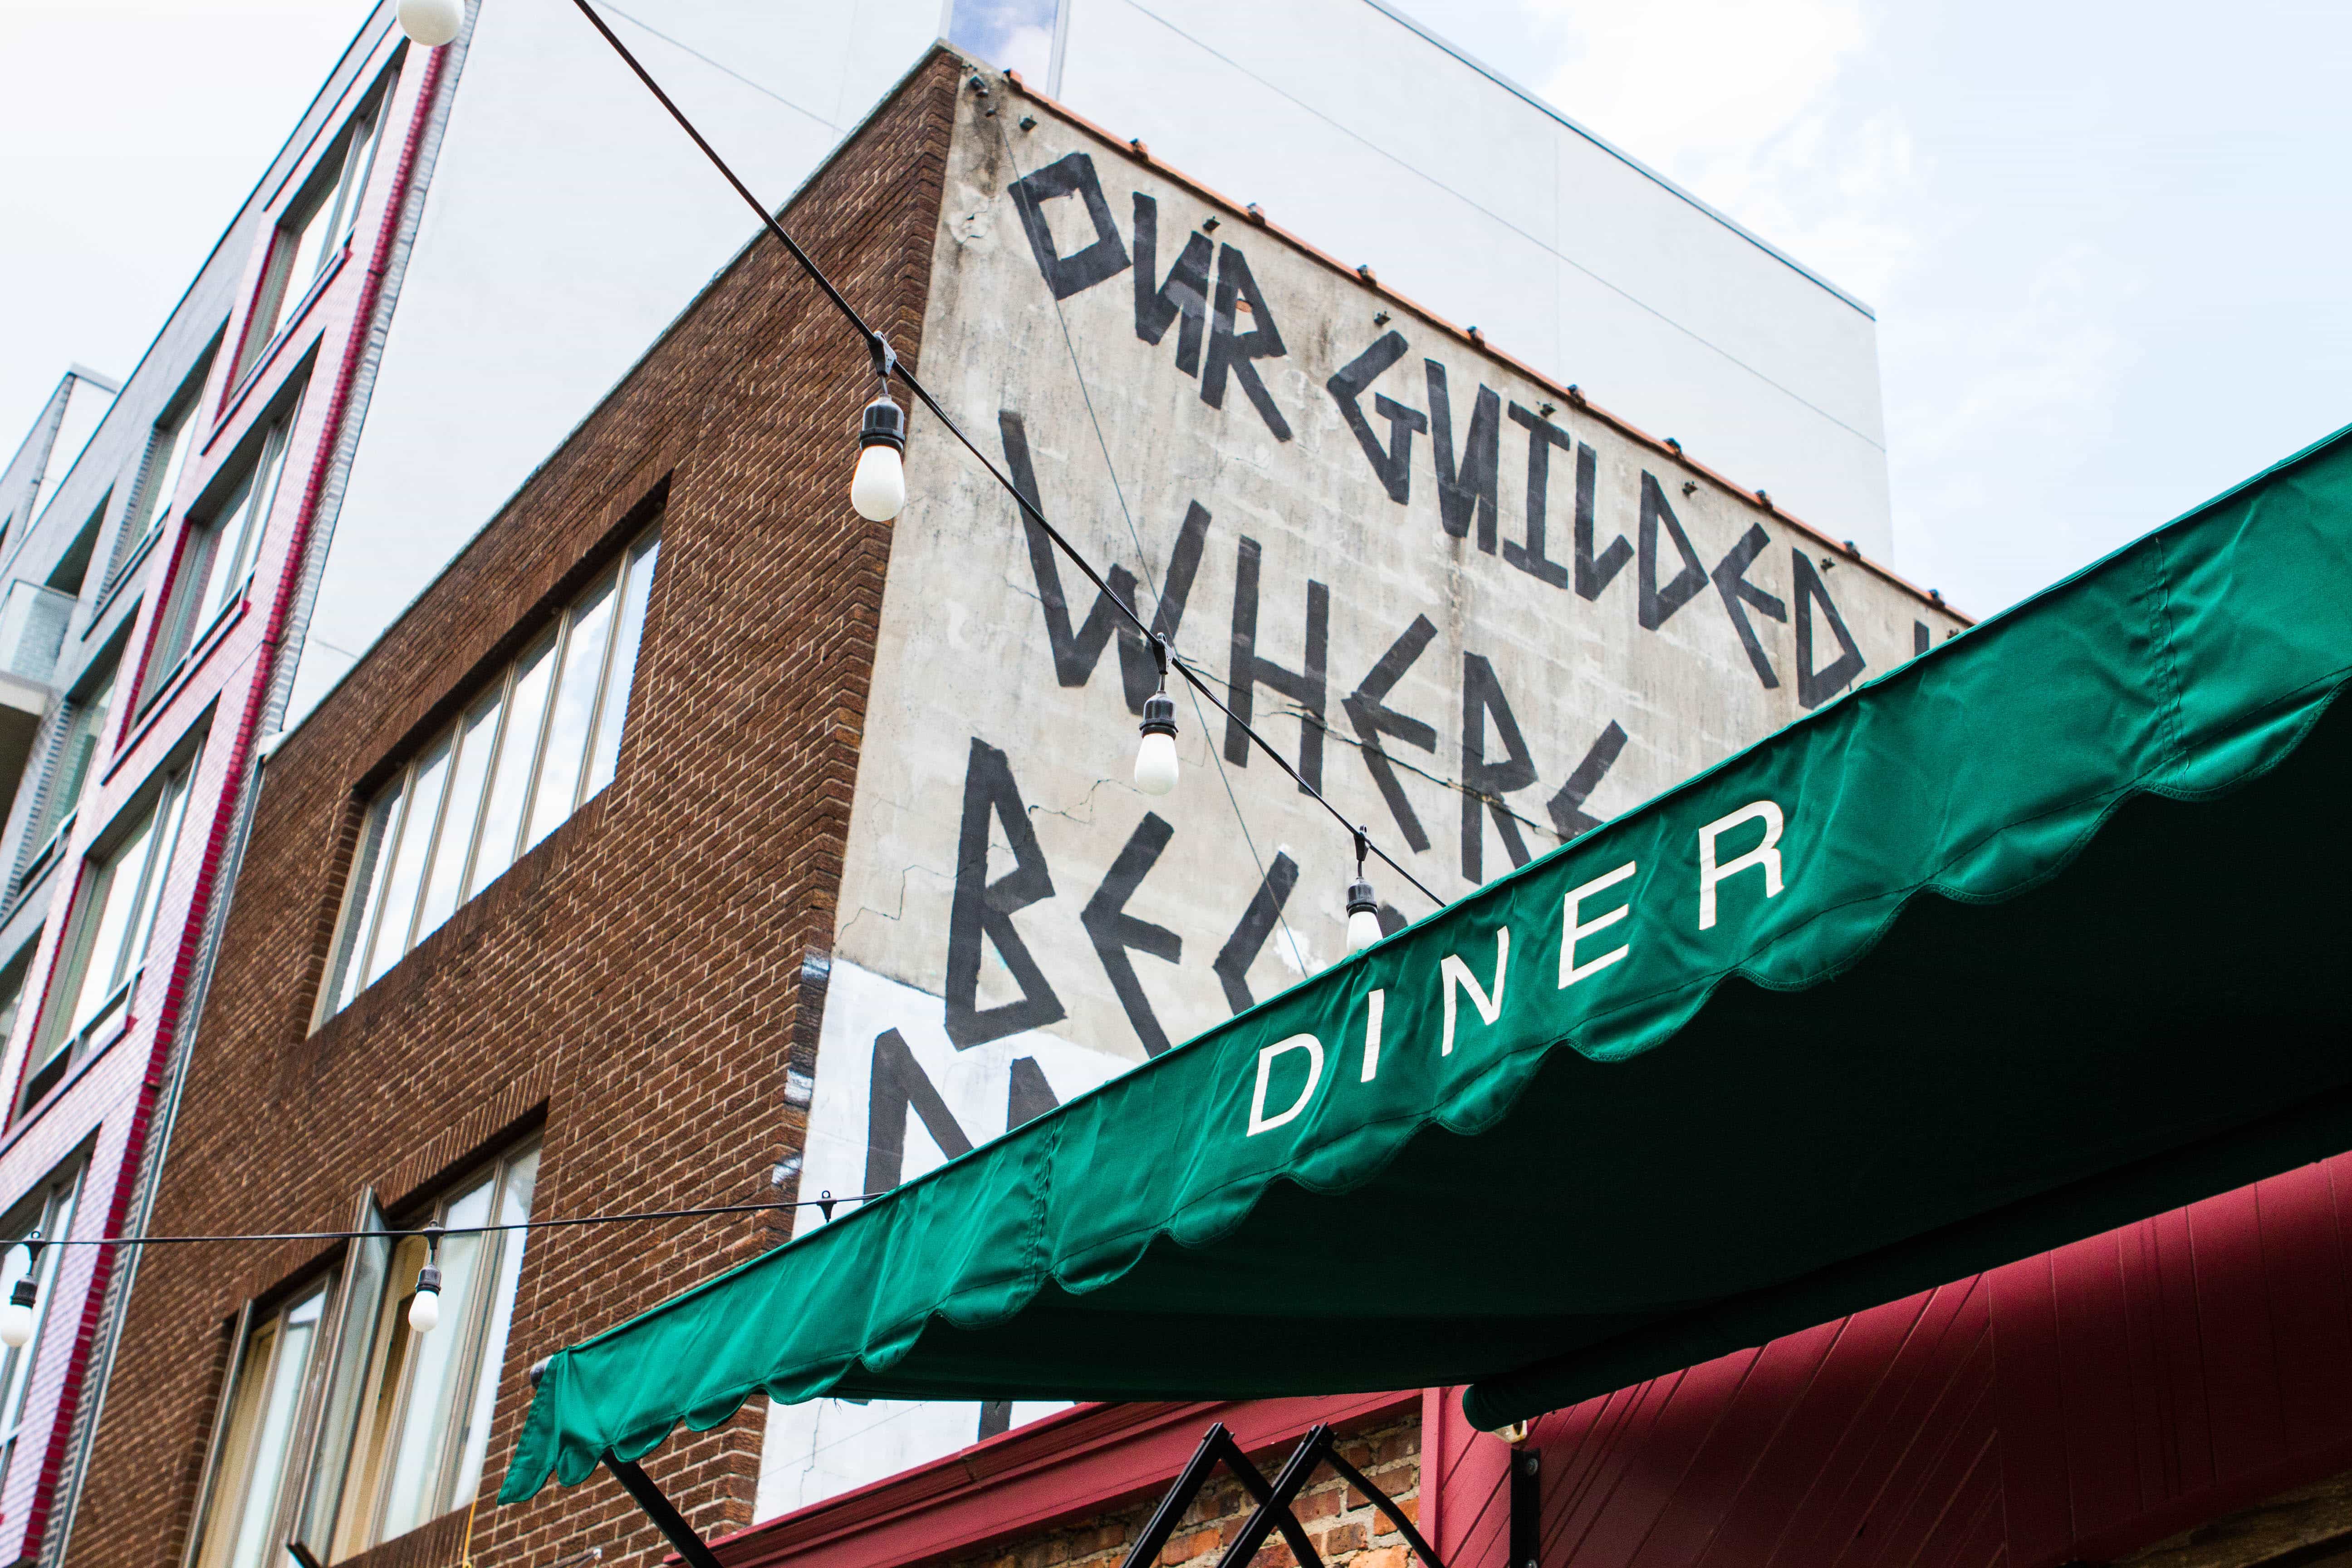 OUR GUILDED
WHERE
BEC
DINER